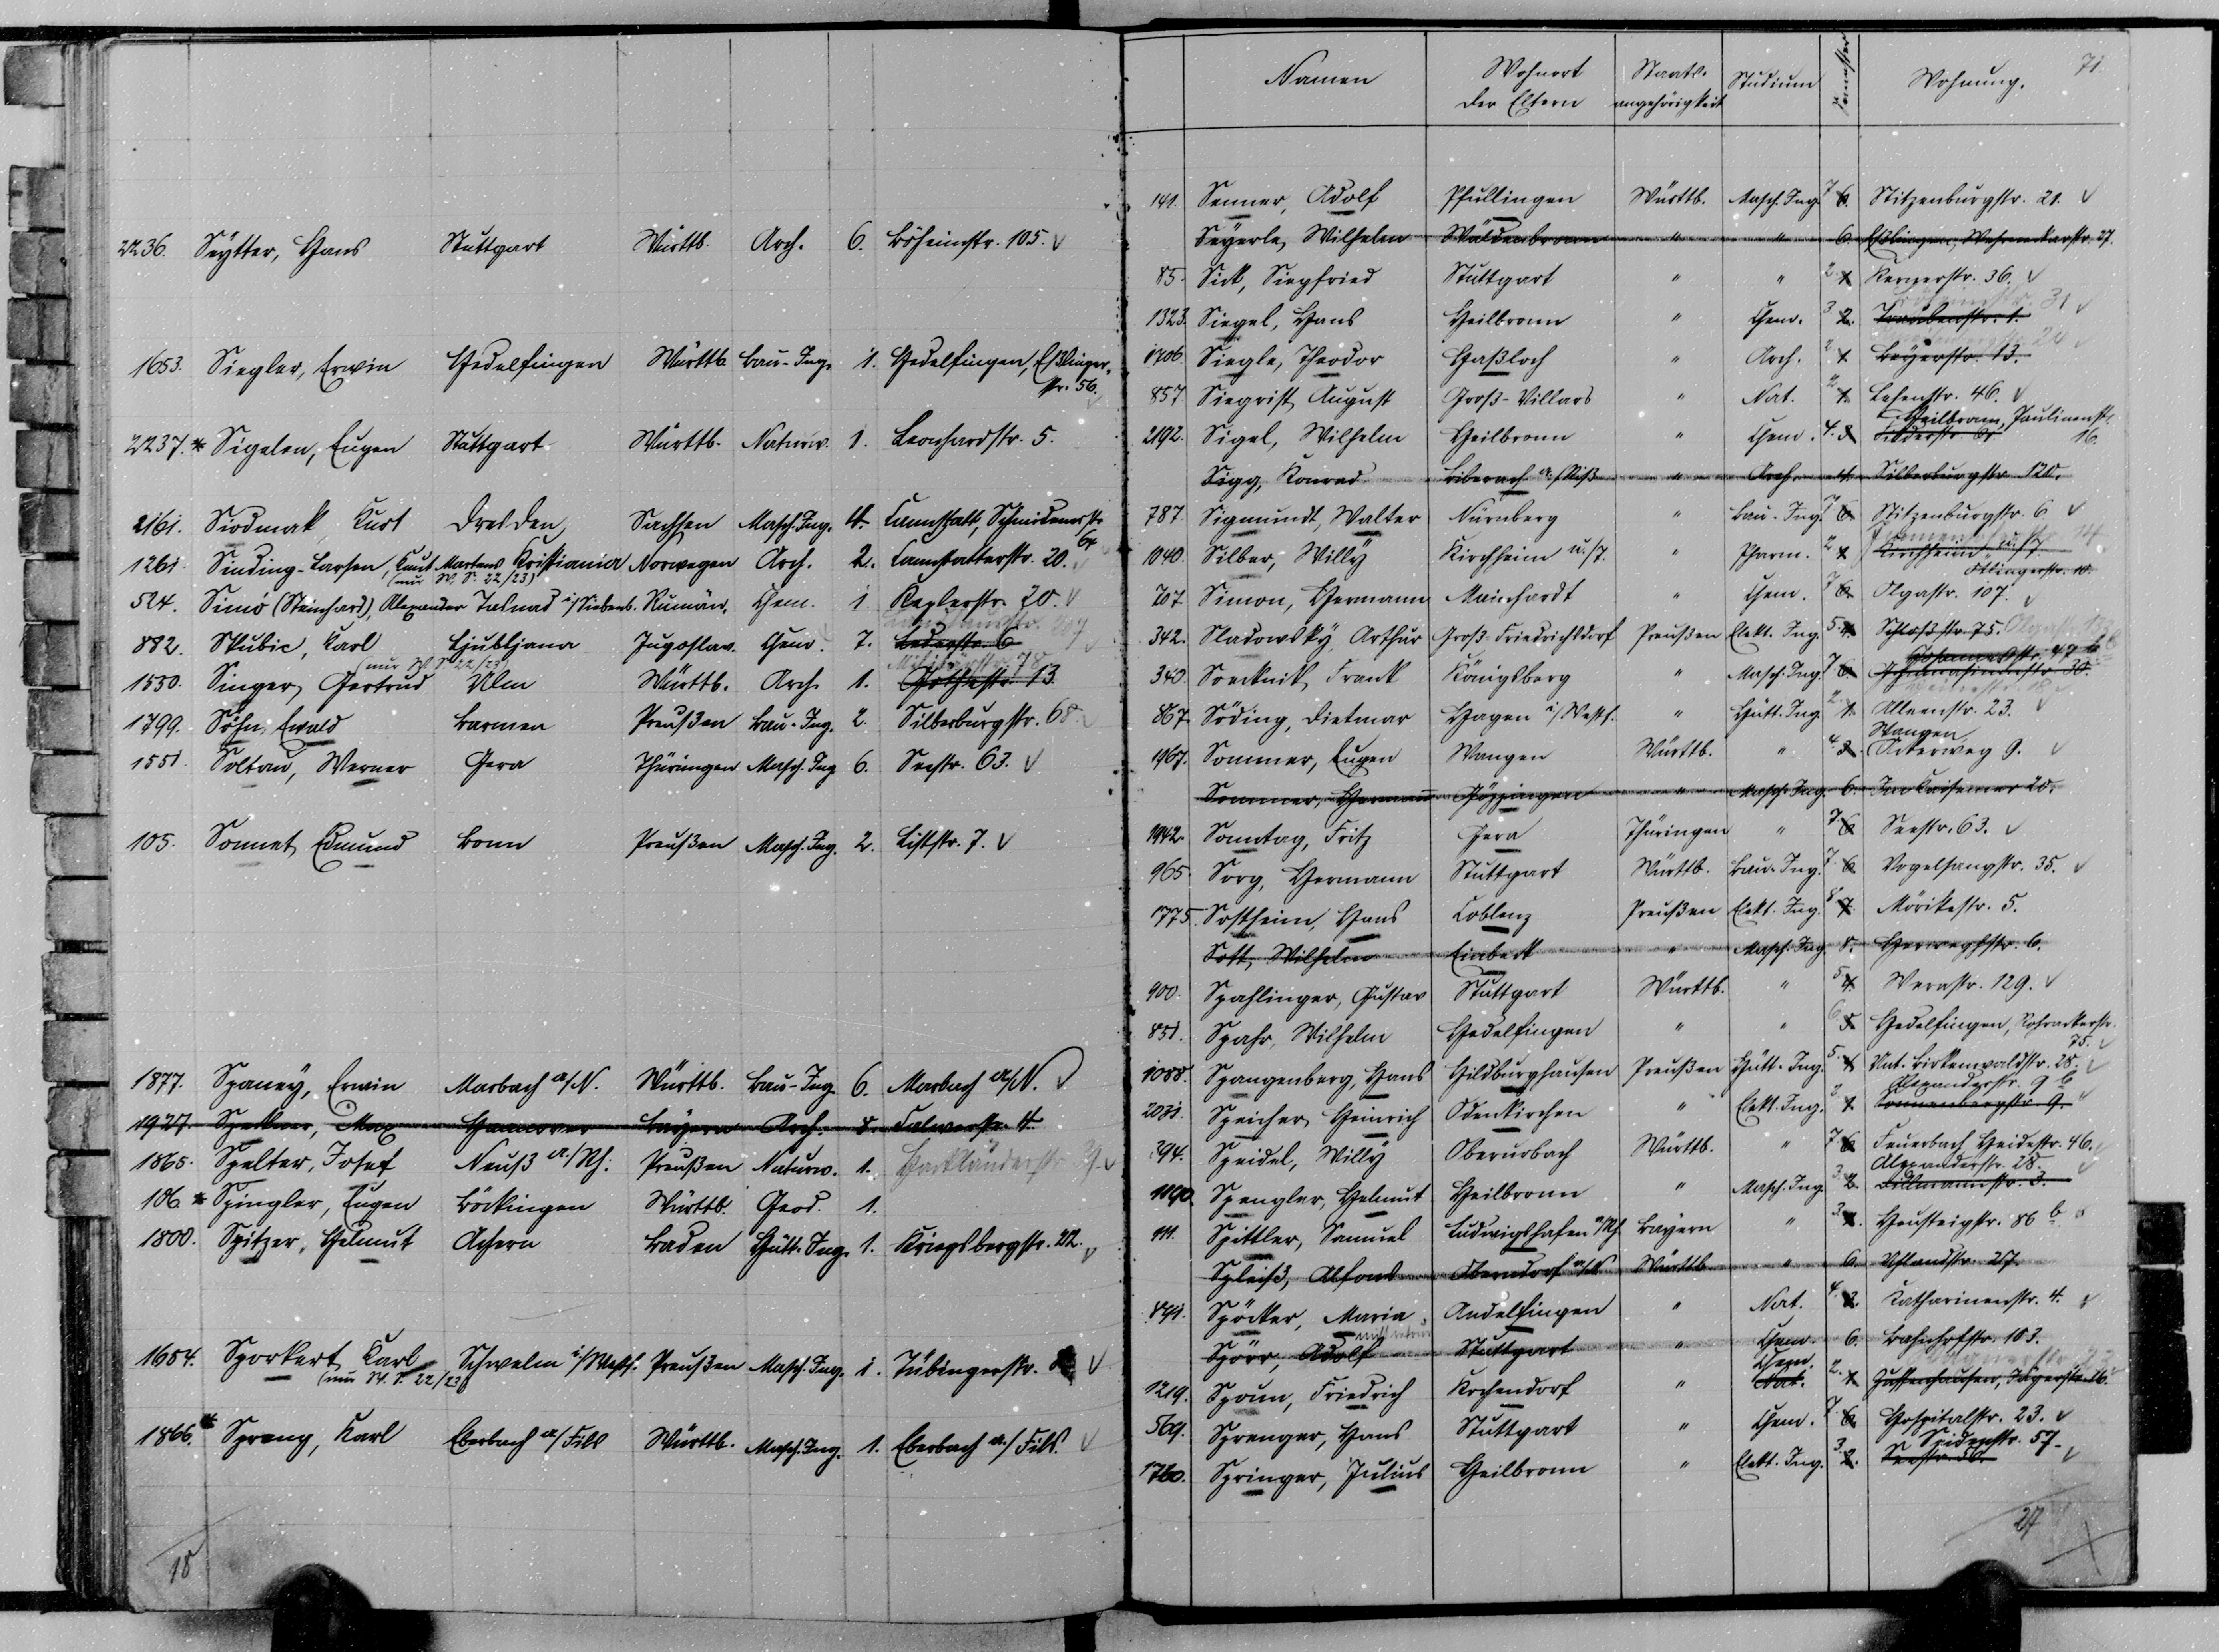 2236. Seytter, Hans Stuttgart Württb. Arch. 6. Böheimstr. 105.
1653. Siegler, Erwin Hedelfingen Württb. Bau-Ing. 1. Hedelfingen, Eßlinger-
str. 56.
2237. * Sigelen, Eugen Stuttgart Württb. Naturw. 1. Leonhardstr. 5.
2161. Siodmak, Kurt Dresden Sachsen Masch. Ing. 4. Cannstatt, Schmidenerstr.
64
1261. Sinding-Larsen, Knut Martens Kristiania Norwegen Arch. 2. Cannstatterstr. 20.
(nur W. S. 22/23)
524. Simó (Steinhard), Alexander i/Siebenb. Rumän. Chem. 1 Keplerstr. 20.
882. Skubic, Karl Ljubljana Jugoslav. Chem. 7. 6
(nur W. S. 22/23)
1530. Singer, Gertrud Ulm Württb. Arch. 1. Militärstr. 78 Gothestr. 13.
1799. Söhn, Ewald Barmen Preußen Bau-Ing. 2. Silberburgstr. 68.
1551. Soltau, Werner Gera Thüringen Masch. Ing. 6. Seestr. 63.
105. Sonnet, Edmund Bonn Preußen Masch. Ing. 2. Liststr. 7.
1877. Spaney, Erwin Marbach a/N. Württb. Bau-Ing. 6. Marbach a/N.
1927. Max Hannover Bayern Arch. 8. Calwerstr. 4.
1865. Spelter, Josef Neuß a/Rh. Preußen Naturw. 1. Hackländerstr.
106. * Spingler, Eugen Böckingen Württb. Geod. 1.
1800. Spitzer, Helmut Achern Baden Hütt. Ing. 1. Kriegsbergstr. 22.
1684. Sporkert, Karl Schwelm i/Westf. Preußen Masch. Ing. 1. Tübingerstr.
(nur W. S. 22/23)
1866. * Spreng, Karl Ebersbach a/Fils Württb. Masch. Ing. 1. Ebersbach a/Fils
18
71
Namen Wohnort der Eltern Staats-angehörigkeit Studium Semester Wohnung.
141. Senner, Adolf Pfullingen Württb. Masch. Ing. 7 6. Stitzenburgstr. 21.
Seyerle, Wilhelm Wäldenbronn " " 6. Eßlingen, 27.
85. Sick, Siegfried Stuttgart " " 2. 1. Kernerstr. 36.
1323. Siegel, Hans Heilbronn " Chem. 3 2. Traubenstr. 1. 31
1706. Siegle, Theodor Haßloch " Arch. 2 1. 13. 24
857. Siegrist, August Groß-Villars " Nat. 2. 1. Lehenstr. 46.
2192. Sigel, Wilhelm Heilbronn " Chem. 4. 3. Heilbronn, Paulinenstr.
16.
Sigg, Konrad Biberach a/Riß " Arch. 4. Silberburgstr. 120.
787. Sigmundt, Walter Nürnberg " Bau-Ing. 7 6. Stitzenburgstr. 6
1040. Silber, Willy Kirchheim u./T. " Pharm. 2 1. Kirchheim u/T. 14
Ötlingerstr. 10.
207. Simon, Hermann Mainhardt " Chem. 7 6. Olgastr. 107.
342. Sladowsky, Arthur Groß-Friedrichsdorf Preußen Elekt. Ing. 5. 4. Schloßstr. 75. Olgastr.
340. Soecknick, Frank Königsberg " Masch. Ing. 7 6. Johannesstr. 47 b
867. Söding, Dietmar Hagen i/Westf. " Hütt. Ing. 2. 1. Alleenstr. 23.
1967. Sommer, Eugen Wangen Württb. " 4. 3. Wangen Ackerweg 9.
Sommer, Hermann Göppingen " Masch. Ing. 6. Im Kaisemer 20.
1942. Sonntag, Fritz Gera Thüringen " 7. 6. Seestr. 63.
965. Sorg, Hermann Stuttgart Württb. Bau-Ing. 7. 6. Vogelsangstr. 35.
1775. Sostheim, Hans Coblenz Preußen Elekt. Ing. 8 7. Mörikestr. 5.
Sott, Wilhelm Einbeck " Masch. Ing. 8. Herweghstr. 6.
900. Spahlinger, Gustav Stuttgart Württb. " 5 4. Werastr. 129.
851. Spahr, Wilhelm Hedelfingen " " 6 5. Hedelfingen, Rohrackerstr.
75.
1088. Spangenberg, Hans Hildburghausen Preußen Hütt. Ing. 5. 4. Unt. Birkenwaldstr. 28.
2031. Speicher, Heinrich Odenkirchen " Elekt. Ing. 2 1. Alexanderstr. 9 b Sonnenbergstr. 9.
394. Speidel, Willy Oberurbach Württb. " 7 6. Feuerbach Heidestr. 46.
1190. Spengler, Helmut Heilbronn " Masch. Ing. 3. 2. Alexanderstr. 28. Dillmannstr. 3.
111. Spittler, Samuel Ludwigshafen a/Rh. Bayern " 3. 2. Heusteigstr. 86 b
Spleiß, Alfons Oberndorf a/N. Württb. " 6. Uhlandstr. 27.
891. Spöcker, Maria Andelfingen " Nat. 4. 3. Katharinenstr. 4.
Spörr, Adolf Stuttgart " Chem. 6. Bahnhofstr. 103.
1219. Spoun, Friedrich Kochendorf " Chem. Nat. 2. 1. Zuffenhausen, 16.
569. Sprenger, Hans Stuttgart " Chem. 7. 6. Hospitalstr. 23.
1760. Springer, Julius Heilbronn " Elekt. Ing. 3. 2. Seidenstr. 57.
27